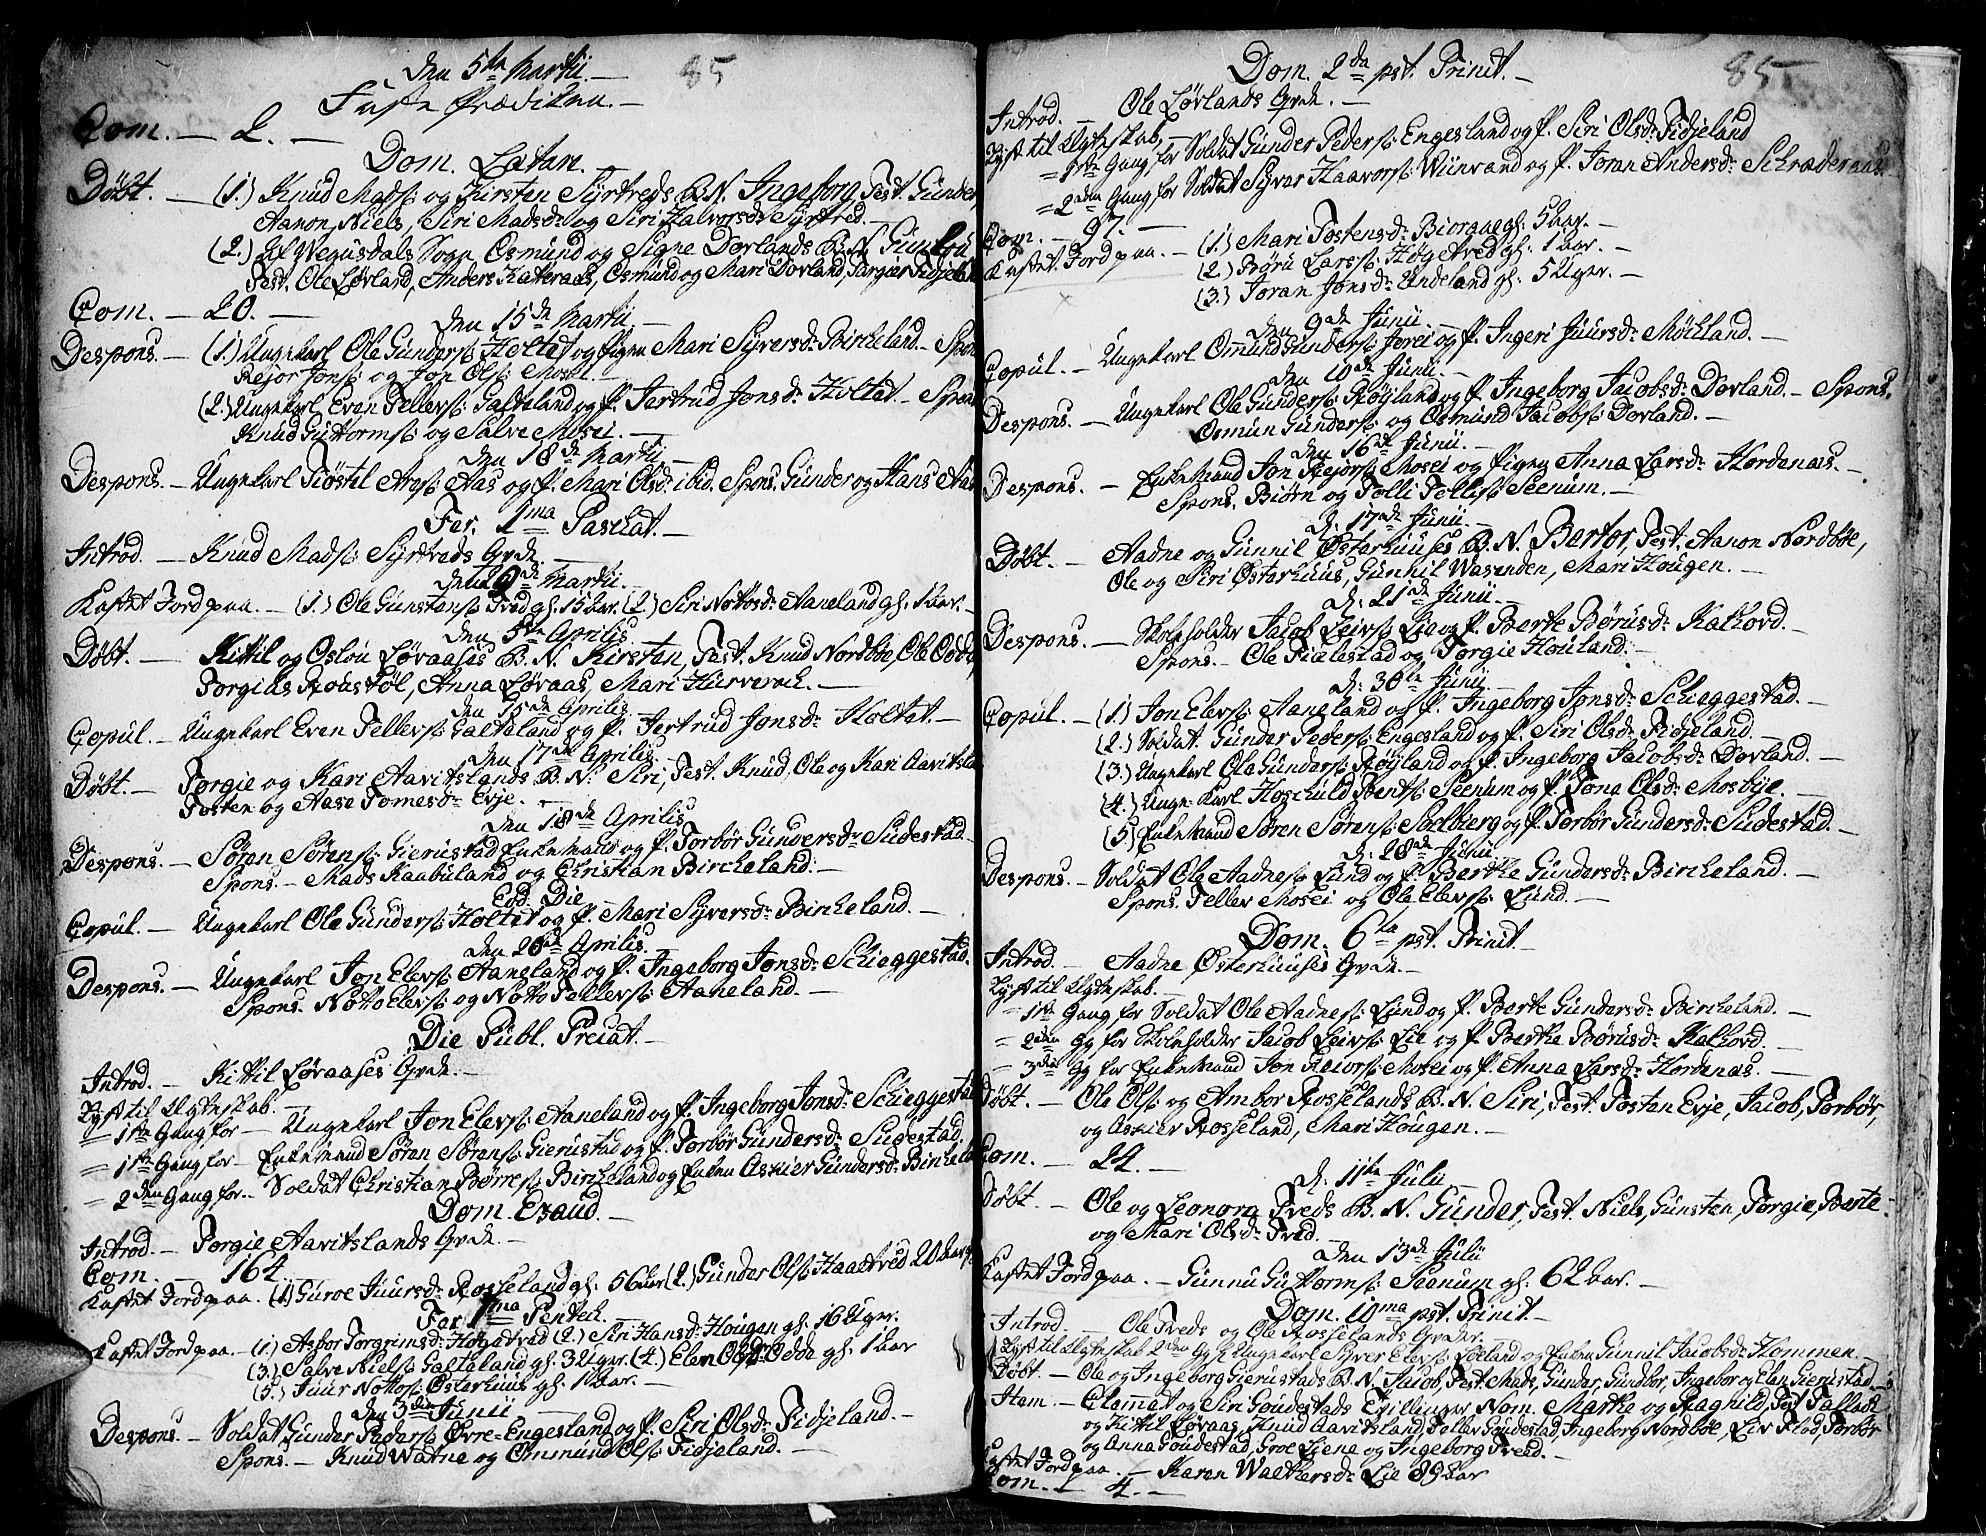 Den 5te Martii. — 85
Faste Prædiken. —
Com. — 2. —
Dom. Lætare.
Døbt. — (1.) Knud Madss: og Kirsten Syrtveds B. N. Ingeborg, Test. Gunder
Aanon, Niels, Siri Madsd: og Siri Halvorsd: Syrtved. —
(2.) Af Vegusdals Sogn, Osmund og Signe Dovlands B. N.
Test. Ole Løvland, Anders Katteraas, Osmund og Mari Dovland, Targier
Com. — 20. —
Den 15de Martii. —
Despons. — (1.) Ungekarl Ole Gunderss: Holtet og Pigen Mari Syversd: Bircheland. —
Rejor Jonss: og Jon Olss: Mosei. —
(2.) Ungekarl Even Tellefss: Galteland og P. Jertrud Jonsd: Holtet. —
Knud Guttormss: og Salve Mosei. —
Den 18de Martii. —
Despons. — Ungekarl Kiøstil Aress: Aas og P. Mari Olsd: ibid. Spons. Gunder og Hans
Fer. 1ma Paschat. —
Introd. — Knud Madss: Syrtveds Qvde. —
Martii. —
Kastet Jord paa. — (1.) Ole Gunstenss: Tved gl. 15 Aar. (2.) Siri Nottosd: Aaneland gl: 1 Aar. —
Den 5te Aprilis.
Døbt. — Kittil og Oslou Løvaases B. N. Kirsten, Test. Knud Nordbøe, Ole
Torgius Roustøl, Anna Løvaas, Mari Hurverach. —
Den 15de Aprilis.
Copul. — Ungekarl Even Tellefss: Galteland og P. Jertrud Jonsd: Holtet. —
Den 17de Aprilis. —
Døbt. — Torgie og Kari Aavitslands B. N. Siri, Test. Knud, Ole og Kari
Tosten og Aase Tomesd: Evje. —
Den 18de Aprilis
Despons. — Søren Sørenss: Gierustad Enkemand og P. Torbør Gundersd: Sudestad.
Spons. — Mads Raabuland og Christian Bircheland. —
Eod. Die —
Copul. — Ungekarl Ole Gunderss: Holtet og P. Mari Syversd: Bircheland. —
Aprilis. —
Despons. — Ungekarl Jon Elefss: Aaneland og P. Ingeborg Jonsd: Schieggestad.
Spons. Notto Elefss: og Notto Tellefss: Aaneland. —
Die Publ. Precat. —
Introd. — Kittil Løvaases Qvde. —
Lyst til Ægteskab. —
= 1ste Gang for — Ungekarl Jon Elefss: Aaneland og P. Ingeborg Jonsd:
= 1ste Gang for — Enkemand Søren Sørenss: Gierustad og P. Torbør Gundersd: Sudestad.
= 2den Gang for — Soldat Christian Børress: Bircheland og Enken Gundersd:
Dom. Exaud. —
Introd. — Torgie Aavitslands Qvde. —
Com. — 164.
Kastet Jord paa. (1.) Guroe Juursd: Rosseland gl: (2.) Gunder Olss: Haaetved 20 Aar
Fer. 1ma Pentec.
Kastet Jord paa. — (1.) Asbør Torgrimsd: (2.) Siri Hansd: Hougen gl: 16 Uger.
(3.) Salve Nielss: Galteland gl: 3 Uger. (4.) Odde gl: 1 Aar
(5.) Juur Nottos: Østerhuus gl: —
Den 3die Junii —
Despons. — Soldat Gunder Pederss: Øvre-Engesland og P. Siri Olsd: Fidjeland. —
Spons. — Knud Watne og Ommund Olss: Fidjeland. —
Dom. 2da pst. Trinit. — 85
Introd. — Ole Løvlands Qvde. —
Lyst til Ægteskab, —
= 1ste Gang for Soldat Gunder Pederss: Engesland og P. Siri Olsd: Fidjeland
= 2den Gang for Soldat Syver Haavorss: Wiinrand og P. Joran Andersd: Schræderaas.
Com. — 97. —
Kastet Jord paa. — (1.) Mari Tostensd: gl: 5 Aar. —
(2.) Børu Larss: Høgetved gl: 1 Aar. —
(3.) Joran Jonsd: Undeland gl: 5 Uger. —
Den 9de Junii —
Copul. — Ungekarl Ommund Gunderss: Jorei og P. Ingeri Juursd: Mølland. —
Den 10de Junii. —
Despons. — Ungekarl Ole Gunderss: Røyland og P. Ingeborg Jacobsd: Dovland. — Spons.
Osmun Gunderss: og Osmund Jacobss: Dovland. —
Den 16de Junii. —
Despons. — Enkemand Jon Rejorss: Mosei og Pigen Anna Larsd: Hordenæs. —
Spons. Biørn og Tolli Tolliss: Seenum. —
D: 17de Junii. —
Døbt. — Aadne og Gunnil Østerhuuses B. N. Bertor, Test. Aanon Nordbøe,
Ole og Siri Østerhuus, Gunhil Wasenden, Mari Hougen. —
D: 21de Junii. —
Despons. — Skoleholder Jacob Leivss: Lie og P. Berte Børusd: Kalhovd. —
Spons. — Ole Fialestad og Torgie Houland. —
D: 30te Junii. —
Copul. — (1.) Jon Elefss: Aaneland og P. Ingeborg Jonsd: Schieggestad. —
(2.) Soldat Gunder Pederss: Engesland og P. Siri Olsd: Fidjeland. —
(3.) Ungekarl Ole Gunderss: Røyland og P. Ingeborg Jacobsd: Dovland. —
(4.) Unge-Karl Hoschuld Bentss: Seenum og P. Tone Olsd: Mosbye. —
(5) Enkemand Søren Sørenss: og P. Torbør Gundersd: Sudestad. —
D: 28de Junii
Despons. — Soldat Ole Aadness: Lund og P. Berthe Gundersd: Bircheland. —
Spons. Tellev Mosei og Ole Elefss: Lund. —
Dom. 6ta pst. Trinit. —
Introd. — Aadne Østerhuuses Qvde. —
Lyst til Ægteskab. —
— 1ste Gang for Soldat Ole Aadness: Lund og P. Berte Gundersd: Bircheland. —
= 2den Gg for Skoleholder Jacob Leivss: Lie og P. Berthe Børusd: Kalhovd. —
— 3die Gg for Enkemand Jon Reiorss: Mosei og P. Anna Larsd: Hordenæs. —
Døbt. — Ole Olss: og Ambor Rosselands B. N. Siri, Test. Tosten Evje, Jacob, Torbør,
og Rosseland, Mari Hougen. —
Com. — 24. —
D: 11te Julii
Døbt. — Ole og Leonora Tveds B. N. Gunder, Test. Niels, Gunsten, Torgie, Berte
og Mari Olsd: Tved. —
Den 13de Julii
Kastet Jord paa. — Gunnu Guttormss: Seenum gl. 62 Aar. —
Dom. 10ma pst. Trinit. —
Introd. — Ole Tveds og Ole Rosselands Qvder. —
Lyst til Ægteskab 2den Gg f. Ungekarl Syver Elefss: og Enken Gunnil Jacobsd: Hommen. —
Døbt. — Ole og Ingeborg Gierustads B. N. Jacob, Test. Mads, Gunder, Gundbor, Ingebor og Elen Gierustad. —
Item. — Clommet og Siri Goudestads Tvillinger Nom. Marthe og Ragnild, Test
og Kittil Løvaas, Knud Aavitsland, Tellev Goudestad, Ingeborg Nordbøe, Liv Flod, Torbør
og Anna Goudestad, Groe Liene og Ingeborg Tved. —
Kastet Jord paa. — Karen Walthersd: Lie 89 Aar
Com. — 4. —